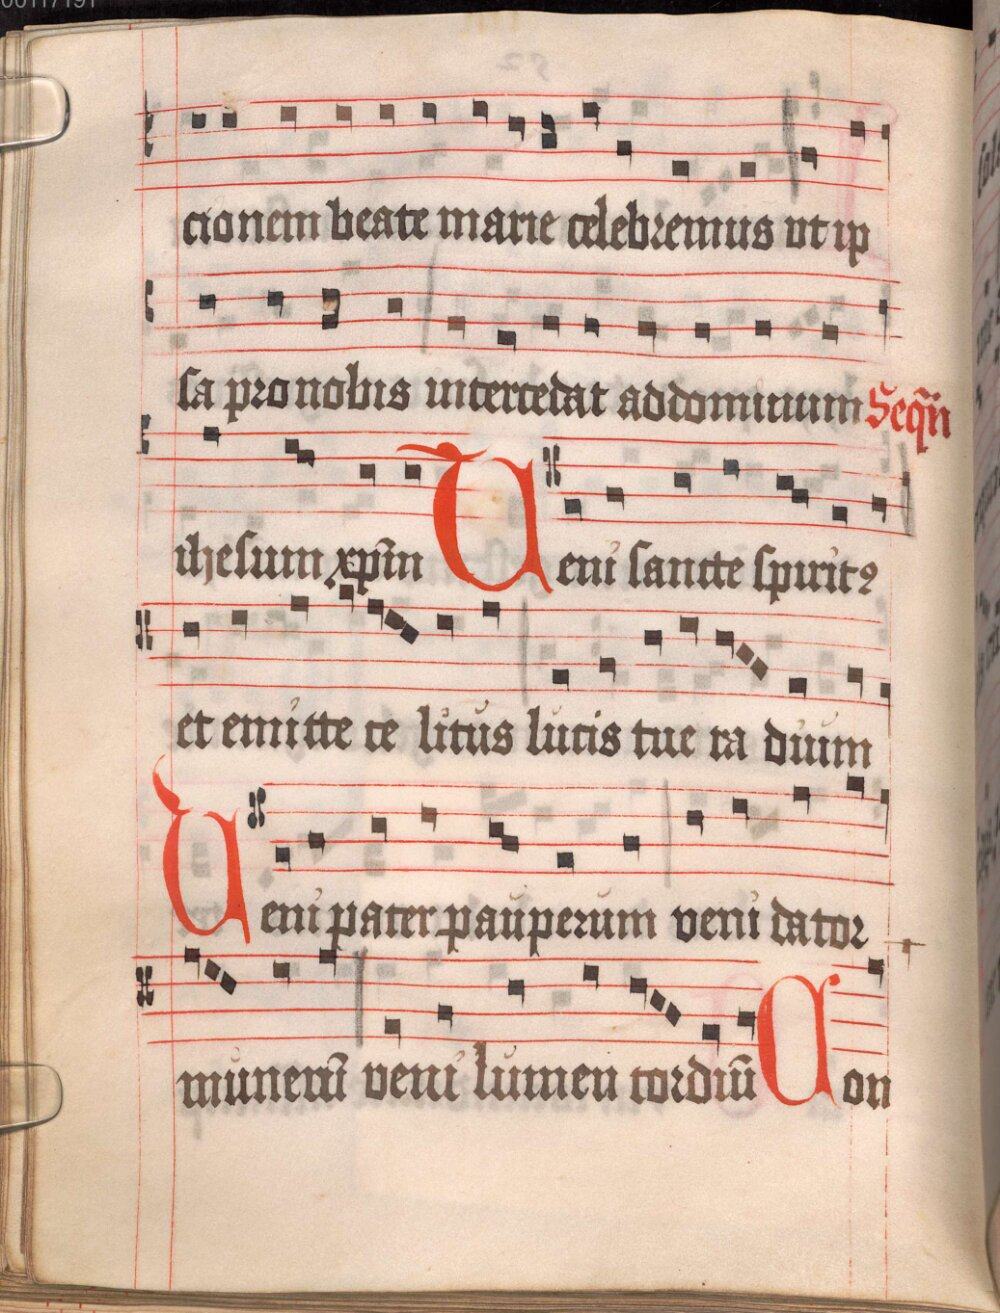 cionem beate marie celebremus ut ip
sa pro nobis intercedat ad dominum Seqn̄
ihesum xp̄m Ueni sancte spiritꝰ
et emitte ce litus lucis tue ra dium
Ueni pater pauperum veni dator
munerū veni lumen cordiū Con